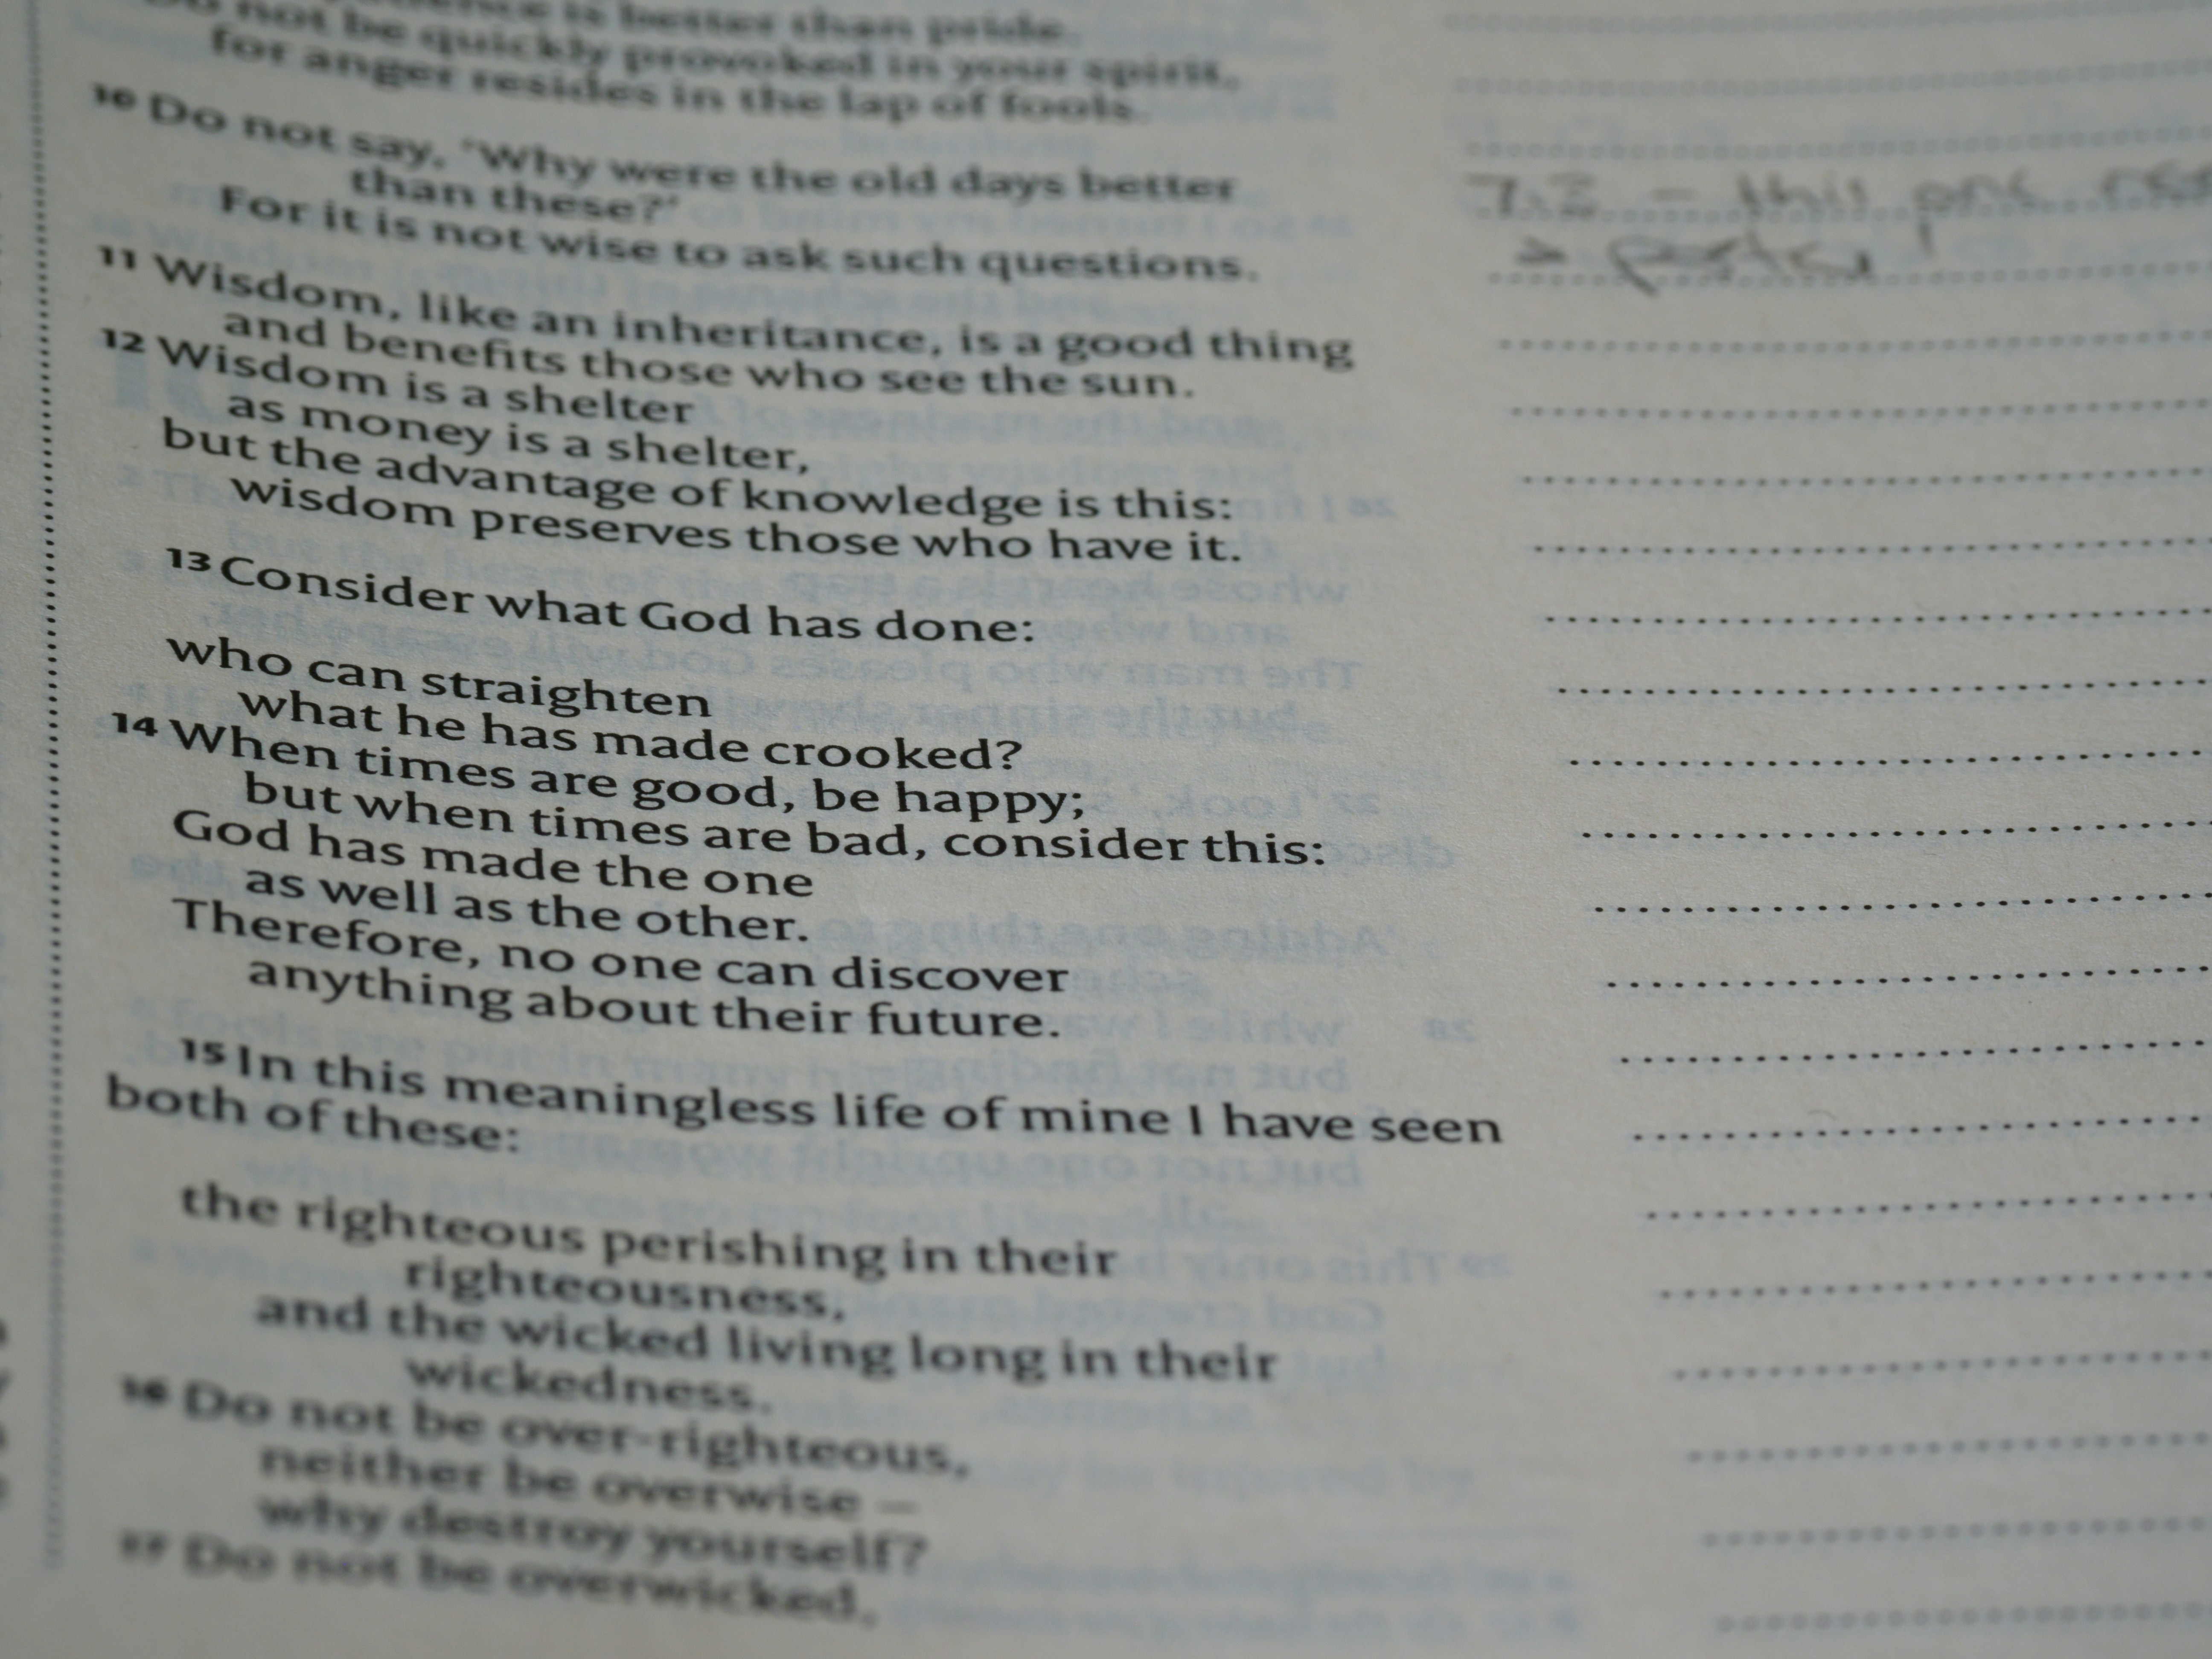 is better than pride.
not be quickly provoked in your spirit,
for anger resides in the lap of fools.
10 Do not say, 'Why were the old days better
than these?'
For it is not wise to ask such questions.
11 Wisdom, like an inheritance, is a good thing
and benefits those who see the sun.
12 Wisdom is a shelter
as money is a shelter,
but the advantage of knowledge is this:
wisdom preserves those who have it.
13 Consider what God has done:
who can straighten
what he has made crooked?
14 When times are good, be happy;
but when times are bad, consider this:
God has made the one
as well as the other.
Therefore, no one can discover
anything about their future.
15 In this meaningless life of mine I have seen
both of these:
the righteous perishing in their
righteousness,
and the wicked living long in their
wickedness.
16 Do not be over-righteous,
neither be overwise –
why destroy yourself?
17 Do not be overwicked,
7.2 – this one